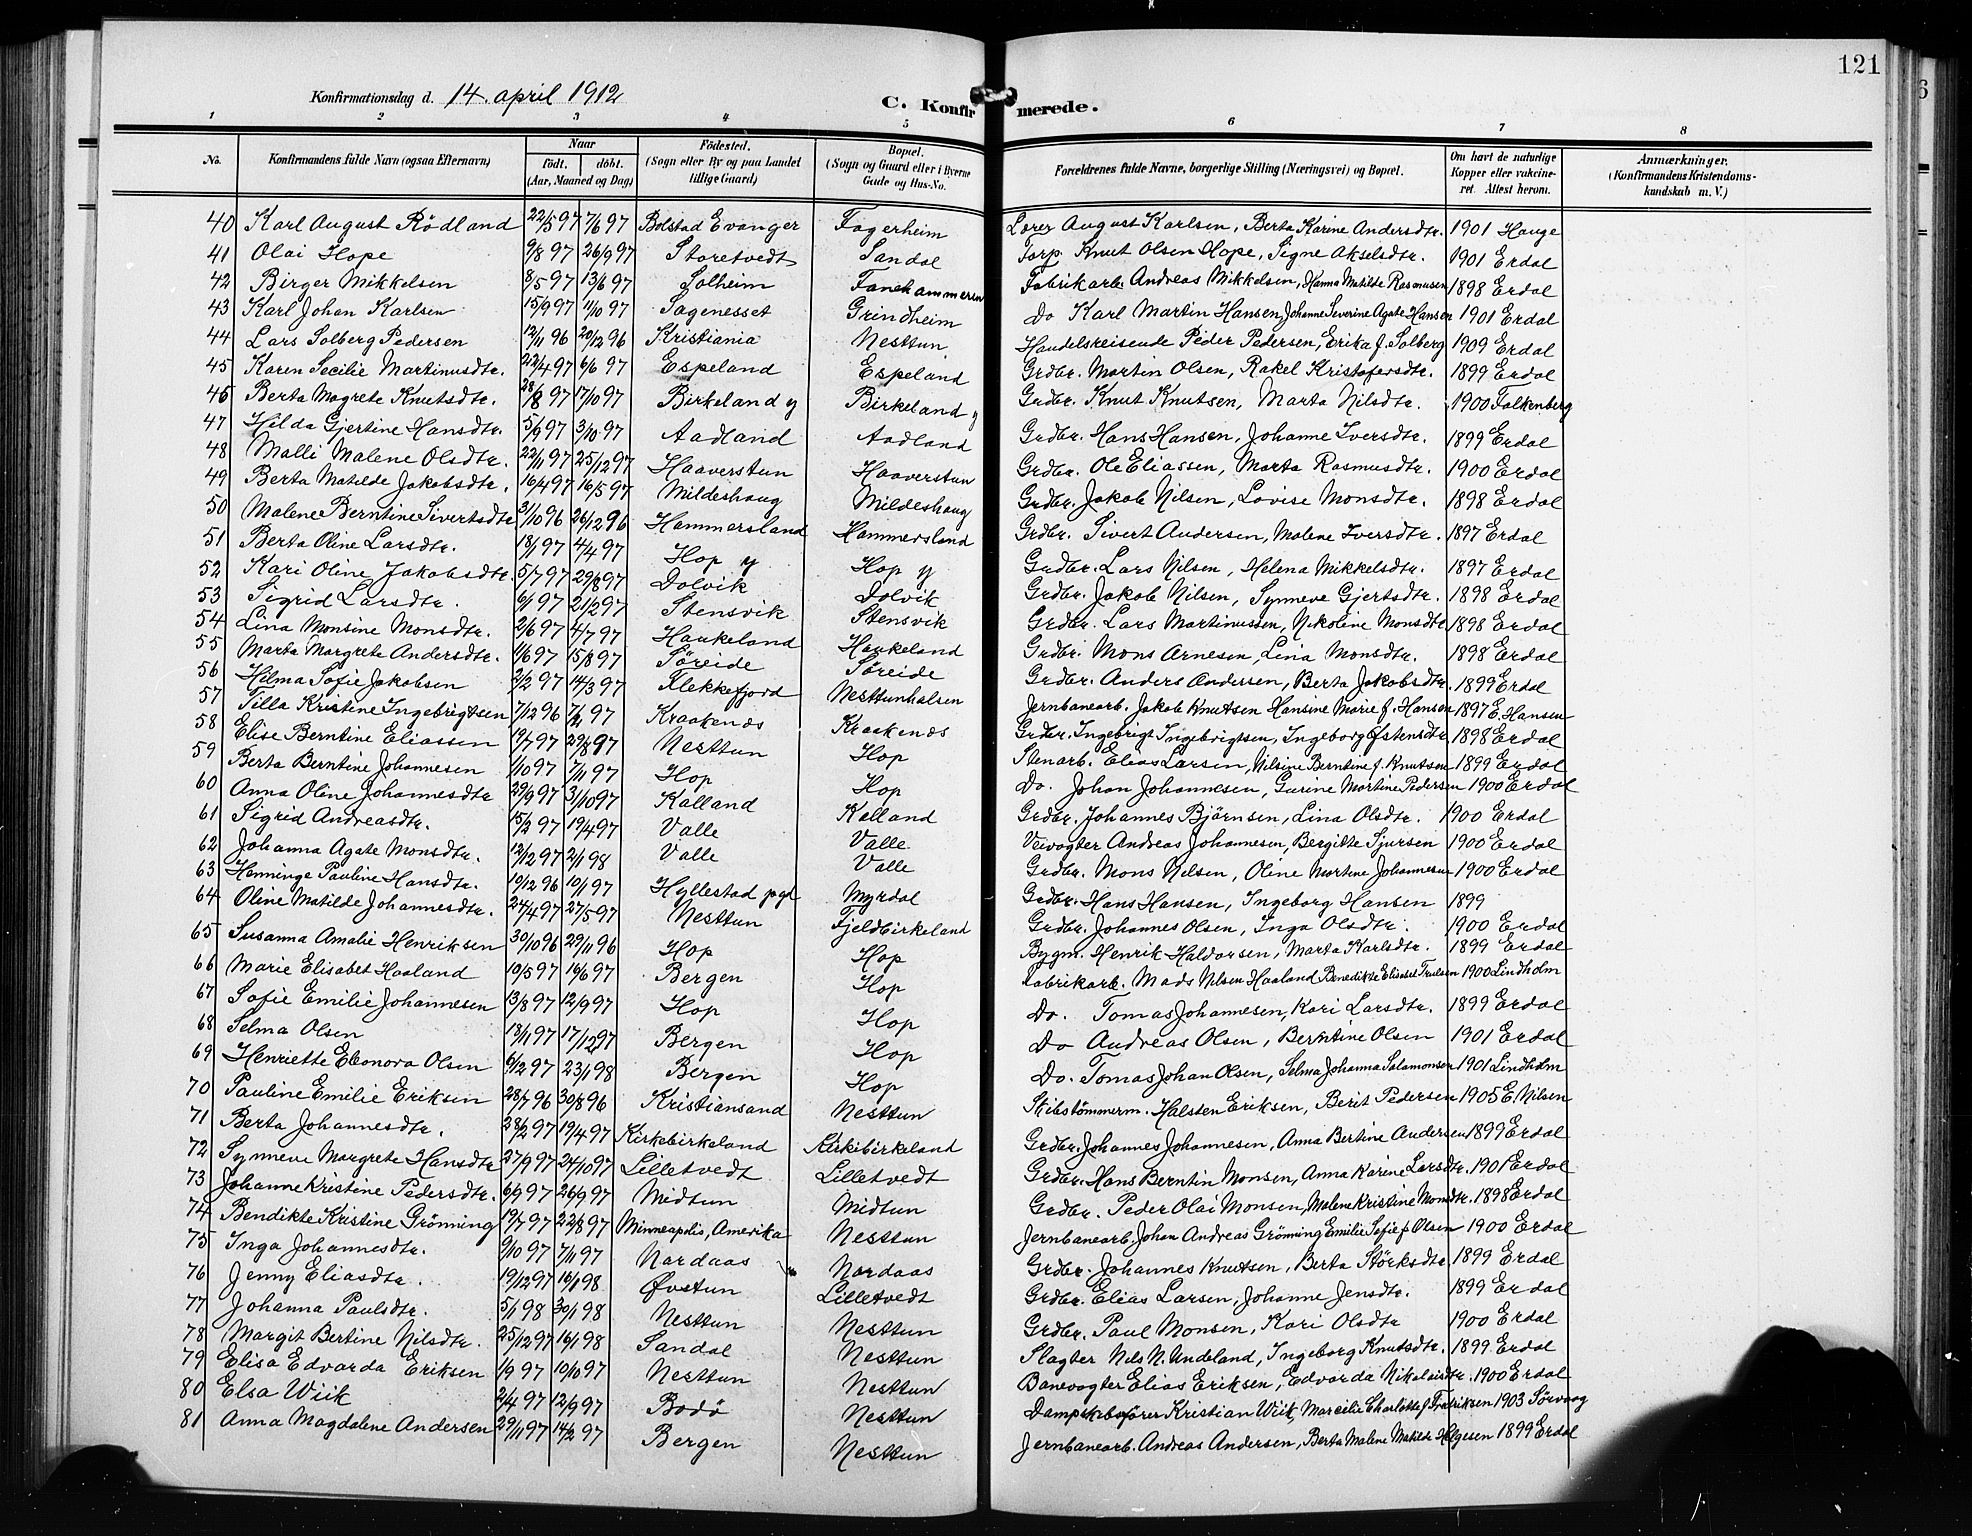 121
Konfirmationsdag d. 14. april 1912
C. Konfirmerede.
1 2 3 4 5 6 7 8
No. Konfirmandens fulde Navn (ogsaa Efternavn) Naar født. døbt. (Aar, Maaned og Dag) Fødested. (Sogn eller By og paa Landet tillige Gaard) Bopæl. (Sogn og Gaard eller i Byerne Gade og Hus-No. Forældrenes fulde Navne, borgerlige Stilling (Næringsvei) og Bopæl. Om havt de naturlige Kopper eller vakcineret. Attest herom. Anmærkninger. (Konfirmandens Kristendomskundskab m. V.)
40 Karl August Rödland 22/5 97 7/6 97 Bolstad Evanger Fagerheim Lærer August Karlsen, Berta Karine Andersdtr. 1901 Hauge
41 Olai Hope 9/8 97 26/9 97 Storetvedt Sandal Torp. Knut Olsen Hope, Signe Akselsdtr. 1901 Erdal
42 Birger Mikkelsen 8/5 97 13/6 97 Solheim Fanehammeren Fabrikarb. Andreas Mikkelsen, Hanna Matilde Rasmusen 1898 Erdal
43 Karl Johan Karlsen 15/9 97 11/10 97 Sagenesset Grindheim Do Karl Martin Hansen, Johanne Severine Agate Hansen 1901 Erdal
44 Lars Solberg Pedersen 12/11 96 20/12 96 Kristiania Nesttun Handelsreisende Peder Pedersen, Erika f. Solberg 1909 Erdal
45 Karen Secilie Martinusdtr. 22/4 97 6/6 97 Espeland Espeland Grdbr. Martin Olsen, Rakel Kristofersdtr. 1899 Erdal
46 Berta Magrete Knutsdtr. 28/8 97 17/10 97 Birkeland y Birkeland y Grdbr. Knut Knutsen, Marta Nilsdtr. 1900 Falkenberg
47 Hilda Gjertine Hansdtr. 5/9 97 3/10 97 Aadland Aadland Grdbr. Hans Hansen, Johanne Iversdtr. 1899 Erdal
48 Malli Malene Olsdtr. 22/11 97 25/12 97 Haaverstun Haaverstun Grdbr. Ole Eliassen, Marta Rasmusdtr. 1900 Erdal
49 Berta Matilde Jakobsdtr. 16/4 97 16/5 97 Mildeshaug Mildeshaug Grdbr. Jakob Nilsen, Lovise Monsdtr. 1898 Erdal
50 Malene Berntine Sivertsdtr 31/10 96 26/12 96 Hammersland Hammersland Grdbr. Sivert Andersen, Malene Iversdtr. 1897 Erdal
51 Berta Oline Larsdtr. 18/1 97 4/4 97 Hop y Hop y Grdbr. Lars Nilsen, Helena Mikkelsdtr. 1897 Erdal
52 Kari Oline Jakobsdtr. 5/7 97 29/8 97 Dolvik Dolvik Grdbr. Jakob Nilsen, Synneve Gjertsdtr. 1898 Erdal
53 Sigrid Larsdtr. 6/1 97 21/2 97 Stensvik Stensvik Grdbr. Lars Martinussen, Nikoline Monsdtr 1898 Erdal
54 Lina Monsine Monsdtr. 2/6 97 4/7 97 Haukeland Haukeland Grdbr. Mons Arnesen, Lina Monsdtr. 1898 Erdal
55 Marta Margrete Andersdtr. 1/6 97 15/8 97 Søreide Søreide Grdbr. Anders Andersen, Berta Jakobsdtr. 1899 Erdal
56 Hilma Sofie Jakobsen 2/2 97 14/3 97 Flekkefjord Nesttunhalsen Jernbanearb. Jakob Knutsen Hansine Marie f. Hansen 1897 E. Hansen
57 Tilla Kristine Ingebrigtsen 7/12 96 97 Kraakenes Kraakenes Grdbr. Ingebrigt Ingebrigtsen, Ingeborg Østensdtr 1898 Erdal
58 Elise Berntine Eliassen 19/7 97 29/8 97 Nesttun Hop Stenarb. Elias Larsen, Nilsine Berntine f. Knutsen 1899 Erdal
59 Berta Berntine Johannesen 1/10 97 7/11 97 Hop Hop Do. Johan Johannesen, Gurine Martine Pedersen 1900 Erdal
60 Anna Oline Johannesdtr 29/9 97 31/10 97 Kalland Kalland Grdbr. Johannes Bjørnsen, Lina Olsdtr. 1900 Erdal
61 Sigrid Andreasdtr. 15/2 97 19/4 97 Valle Valle Veivogter Andreas Johannesen, Bergitte Sjursen 1900 Erdal
62 Johanna Agate Monsdtr. 12/12 97 2/1 98 Valle Valle Grdbr. Mons Nilsen, Oline Martine Johannesen 1900 Erdal
63 Henninge Pauline Hansdtr. 10/12 96 10/1 97 Hyllestad pgd Myrdal Grdbr. Hans Hansen, Ingeborg Hansen 1899
64 Oline Matilde Johannesdtr. 24/4 97 27/5 97 Nesttun Fjeldbirkeland Grdbr. Johannes Olsen, Inga Olsdtr. 1900 Erdal
65 Susanna Amalie Henriksen 30/10 96 29/11 96 Hop Hop Bygm. Henrik Haldorsen, Marta Karlsdtr. 1899 Erdal
66 Marie Elisabet Haaland 10/5 97 16/6 97 Bergen Hop Fabrikarb. Mads Nilsen Haaland Benedikte Eliset Trulsen 1900 Lindholm
67 Sofie Emilie Johannesen 13/8 97 12/9 97 Hop Hop Do. Tomas Johannesen, Kari Larsdtr. 1899 Erdal
68 Selma Olsen 13/11 97 17/12 97 Bergen Hop Do Andreas Olsen, Berntine Olsen 1901 Erdal
69 Henriette Eleonora Olsen 6/12 97 23/1 98 Bergen Hop Do. Tomas Johan Olsen, Selma Johanna Salamonsen 1901 Lindholm
70 Pauline Emilie Eriksen 28/7 96 30/8 96 Kristiansand Nesttun Skibstömmerm. Halsten Eriksen, Berit Pedersen 1905 E. Nilsen
71 Berta Johannesdtr. 28/2 97 19/4 97 Kirkebirkeland Kirkibirkeland Grdbr. Johannes Johannesen, Anna Bertine Andersen 1899 Erdal
72 Synneve Margrete Hansdtr 27/9 97 24/10 97 Lilletvedt Lilletvedt Grdbr. Hans Berntin Monsen, Anna Karine Larsdtr. 1901 Erdal
73 Johanne Kristine Pedersdtr. 6/9 97 26/9 97 Midtun Midtun Grdbr. Peder Olai Monsen, Malene Kristine Monsdtr. 1898 Erdal
74 Bendikte Kristine Grönning 19/7 97 22/8 97 Minneapolis, Amerika Nesttun Jernbanearb. Johan Andreas Grönning Emilie Sofie f. Olsen 1900 Erdal
75 Inga Johannesdtr. 9/10 97 7/11 97 Nordaas Nordaas Grdbr. Johannes Knutsen, Berta Störksdtr 1899 Erdal
76 Jenny Eliasdtr. 19/12 97 16/1 98 Øvstun Lilletvedt Grdbr. Elias Larsen, Johanne Jensdtr. 1899 Erdal
77 Johanna Paulsdtr. 5/1 98 30/1 98 Nesttun Nesttun Grdbr. Paul Monsen, Kari Olsdtr 1900 Erdal
78 Margit Bertine Nilsdtr. 25/12 97 16/1 98 Sandal Nesttun Slagter Nils N. Undeland, Ingeborg Knutsdtr. 1899 Erdal
79 Elisa Edvarda Eriksen 1/9 97 10/10 97 Nesttun Nesttun Banevogter Elias Eriksen, Edvarda Nikolaisdtr. 1900 Erdal
80 Elsa Wiik 2/4 97 12/9 97 Bodö Nesttun Dampskibsfører Kristian Wiik, Marcelie Charlotte f. Fredriksen 1903 Sörvaag
81 Anna Magdalene Andersen 29/11 97 14/2 97 Bergen Nesttun Jernbanearb. Andreas Andersen, Berta Malene Matilde Helgesen 1899 Erdal